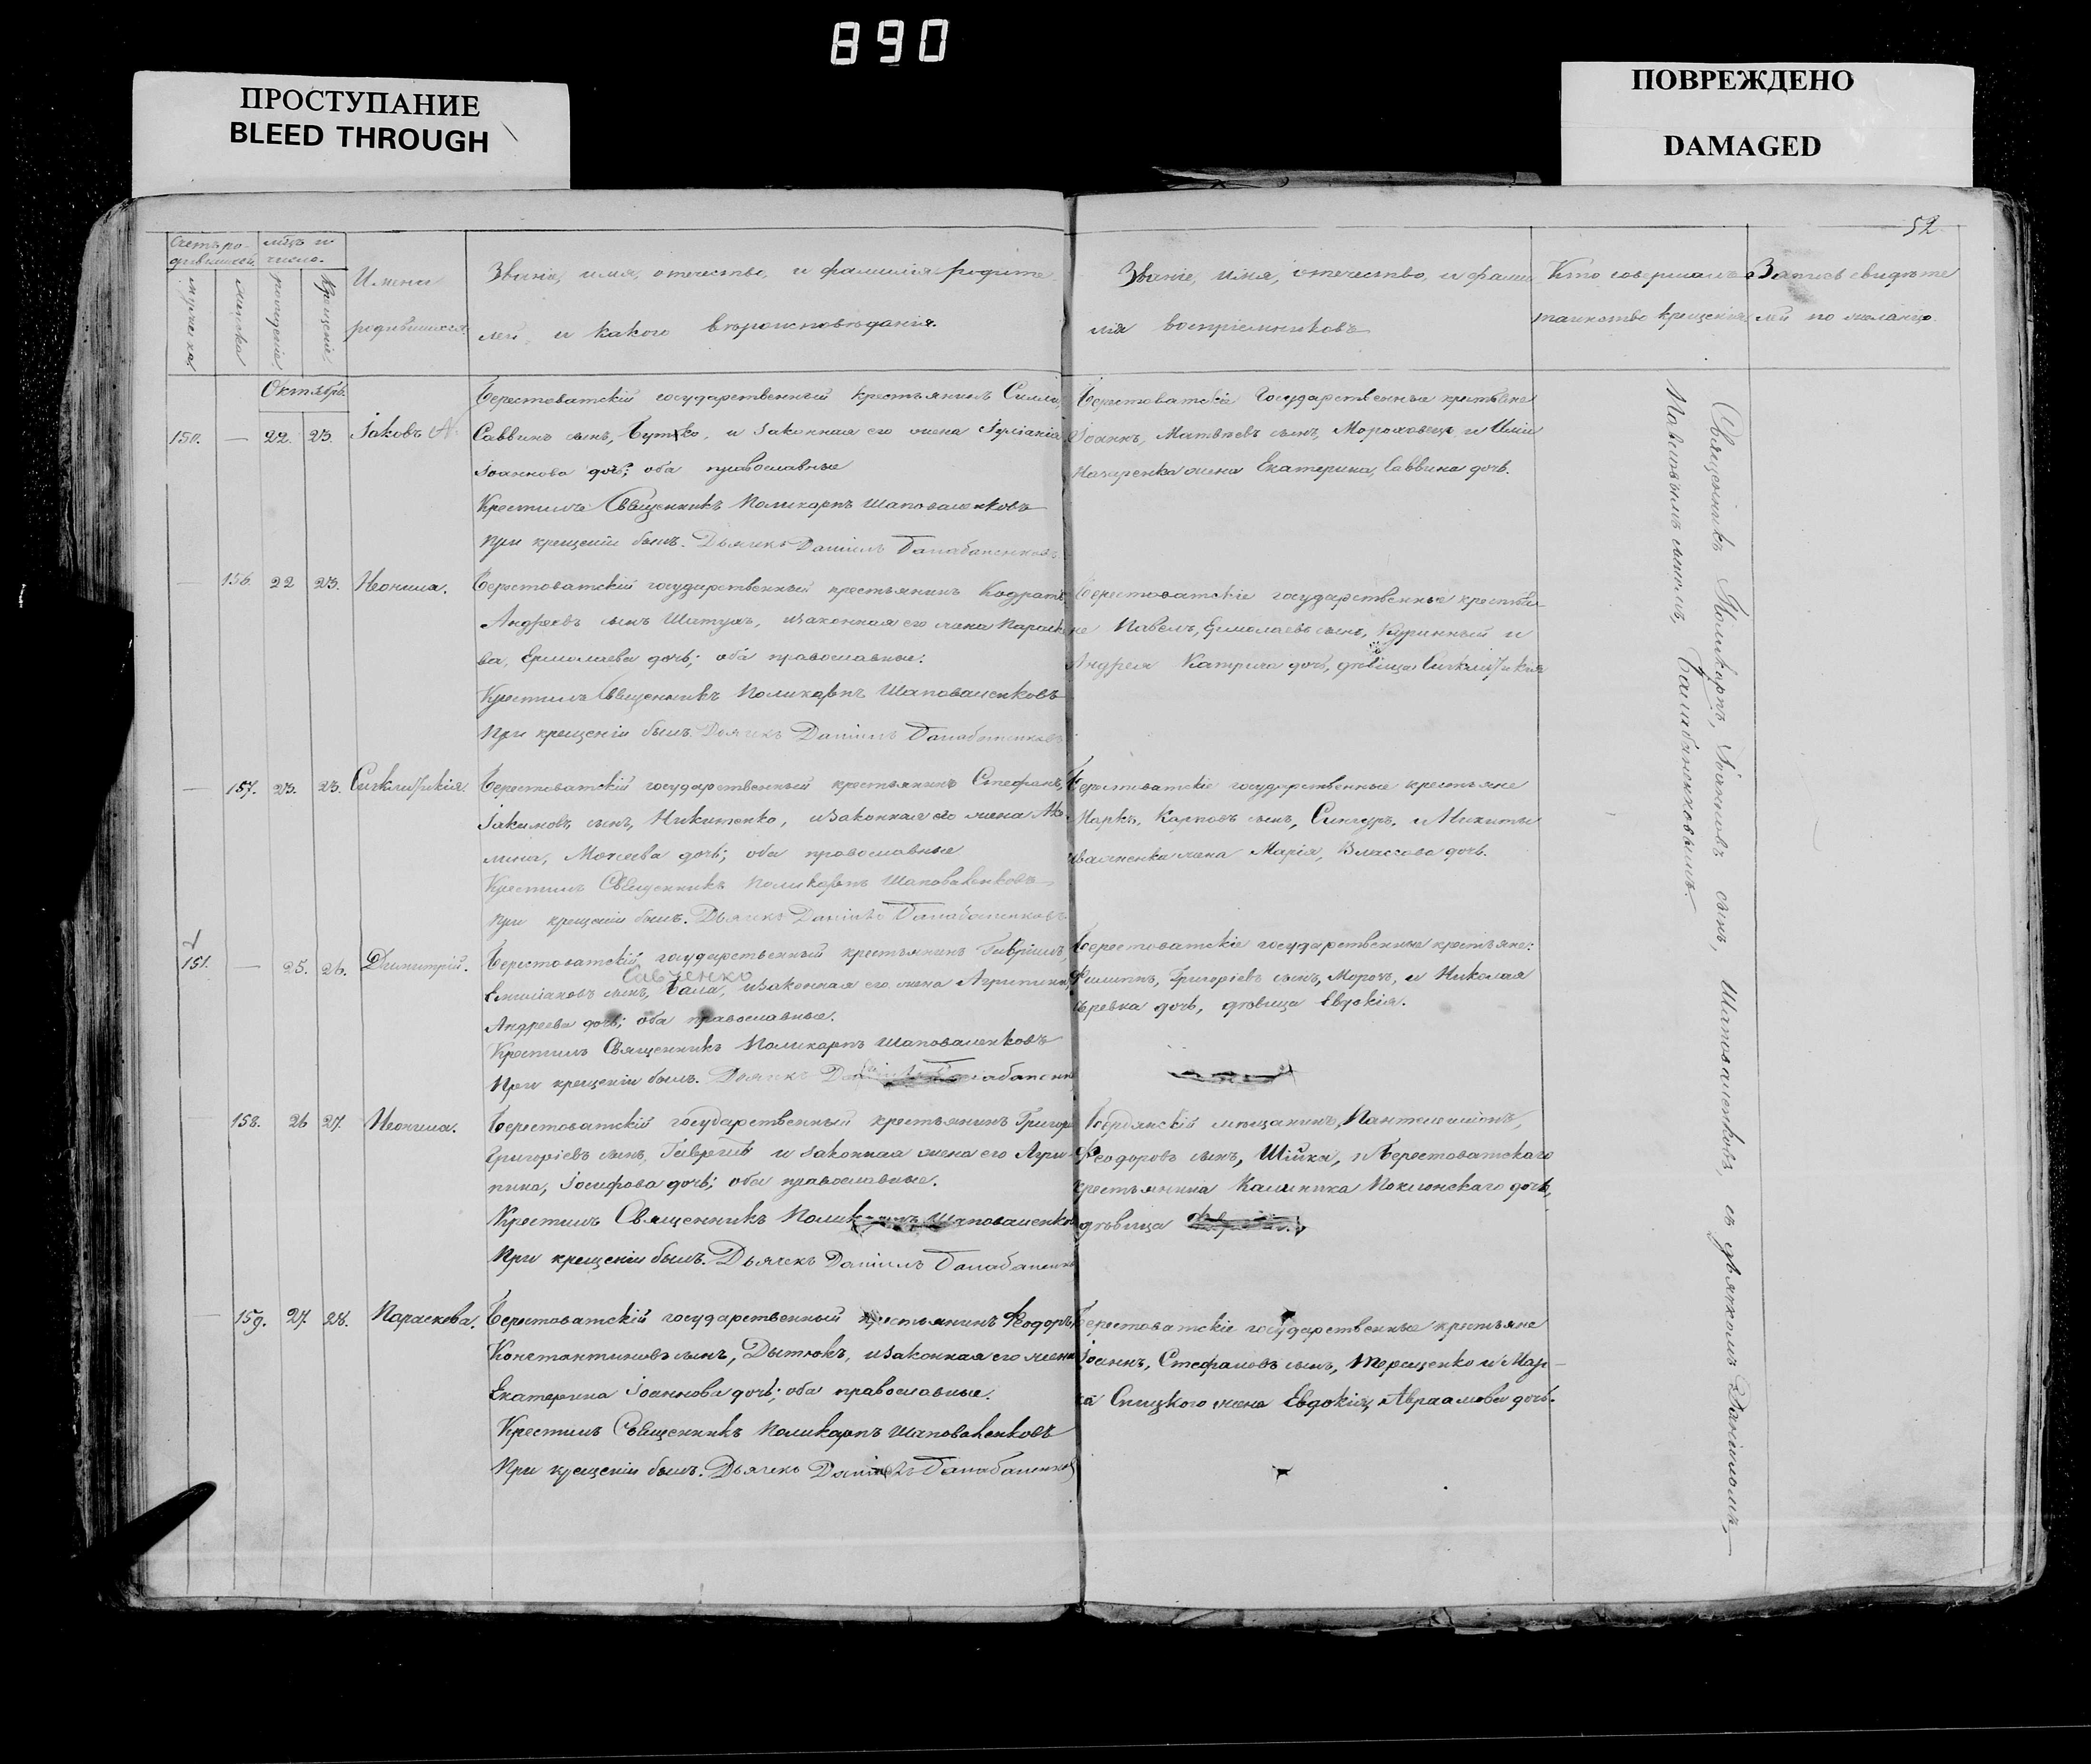 890
ПРОСТУПАНИЕ
BLEED THROUGH
ПОВРЕЖДЕНО
DAMAGED
52
Счетъ ро-
дившихся.
мѣсяцъ и
число.
мужеска.
женска
рожденія
крещенія
Имена
родившихся
Званіе, имя, отечество, и фамилія родите
лей, и какого вѣроисповѣданія.
Званіе, имя, отечество, и фами
лія воспріемниковъ
Кто совершалъ
таинство крещенія
Запись свидѣте
лей по желанію.
Октябрь
150. — 22. 23. Іаковъ
Берестоватскій государственный крестьянинъ
Саввинъ сынъ, Бутко, и законная его жена Іуліанія
Іоаннова дочь; оба православные
Крестилъ Священникъ Поликарпъ Шаповаленковъ
При крещеніи былъ. Дьячекъ Даніилъ Балабаненковъ
Берестоватскіе Государственные крестьяне
Іоаннъ, Матвѣевъ сынъ, Мороховецъ и
Назаренка жена Екатерина, Саввина дочь.
— 156. 22 23. Неонила.
Берестоватскій государственный крестьянинъ Кодратъ
Андреевъ сынъ Шатухъ, и законная его жена Параске
ва, Ермолаева дочь; оба православные.
Крестилъ Священникъ Поликарпъ Шаповаленковъ
При крещеніи былъ. Дьячекъ Даніилъ Балабаненковъ
Берестоватскіе государственные крестья-
не Павелъ, Ермолаевъ сынъ, Куринный и
Андрея дочь, дѣвица Сигклитикія
— 157. 23. 23. Сигклитикія.
Берестоватскій государственный крестьянинъ Стефанъ,
Іакимовъ сынъ, Никитенко, и законная его жена Аки
лина, Моисеева дочь; оба православные
Крестилъ Священникъ Поликарпъ Шаповаленковъ
При крещеніи былъ. Дьячекъ Даніилъ Балабаненковъ
Берестоватскіе государственные крестьяне
Маркъ, Карповъ сынъ, Сингуръ, и Никиты
Иваненка жена Марія, Власова дочь.
151. — 25. 26. Димитрій.
Берестоватскій государственный крестьянинъ Гавріилъ,
Савченко
Емиліановъ сынъ, Бала, и законная его жена Агрипина,
Андреева дочь; оба православные.
Крестилъ Священникъ Поликарпъ Шаповаленковъ
При крещеніи былъ. Дьячекъ
Берестоватскіе государственные крестьяне:
Филиппъ, Григоріевъ сынъ, Морозъ, и Николая
дочь, дѣвица Евдокія.
— 158. 26 27. Неонила.
Берестоватскій государственный крестьянинъ Григорій
Григоріевъ сынъ, и законная жена его Агри-
пина, Іосифова дочь; оба православные.
Крестилъ Священникъ Поликарпъ Шаповаленковъ
При крещеніи былъ. Дьячекъ Даніилъ Балабаненковъ
Бердянскій мѣщанинъ, Пантелеимонъ,
Феодоровъ сынъ, Шійка, и Берестоватскаго
крестьянина Калиника Поклонскаго дочь,
дѣвица
— 159. 27. 28. Параскева.
Берестоватскій государственный крестьянинъ Феодоръ,
Константиновъ сынъ, Дытюкъ, и законная его жена
Екатерина Іоаннова дочь; оба православные.
Крестилъ Священникъ Поликарпъ Шаповаленковъ
При крещеніи былъ. Дьячекъ Даніилъ Балабаненковъ
Берестоватскіе государственные крестьяне
Іоаннъ, Стефановъ сынъ, Терещенко и Мар-
ка Спицкого жена Евдокія, Авраамова дочь.
Священникъ Поликарпъ, Іоанновъ сынъ, Шаповаленковъ, съ дьячкомъ Даніиломъ,
Павловымъ сыномъ, Балабаненковымъ.